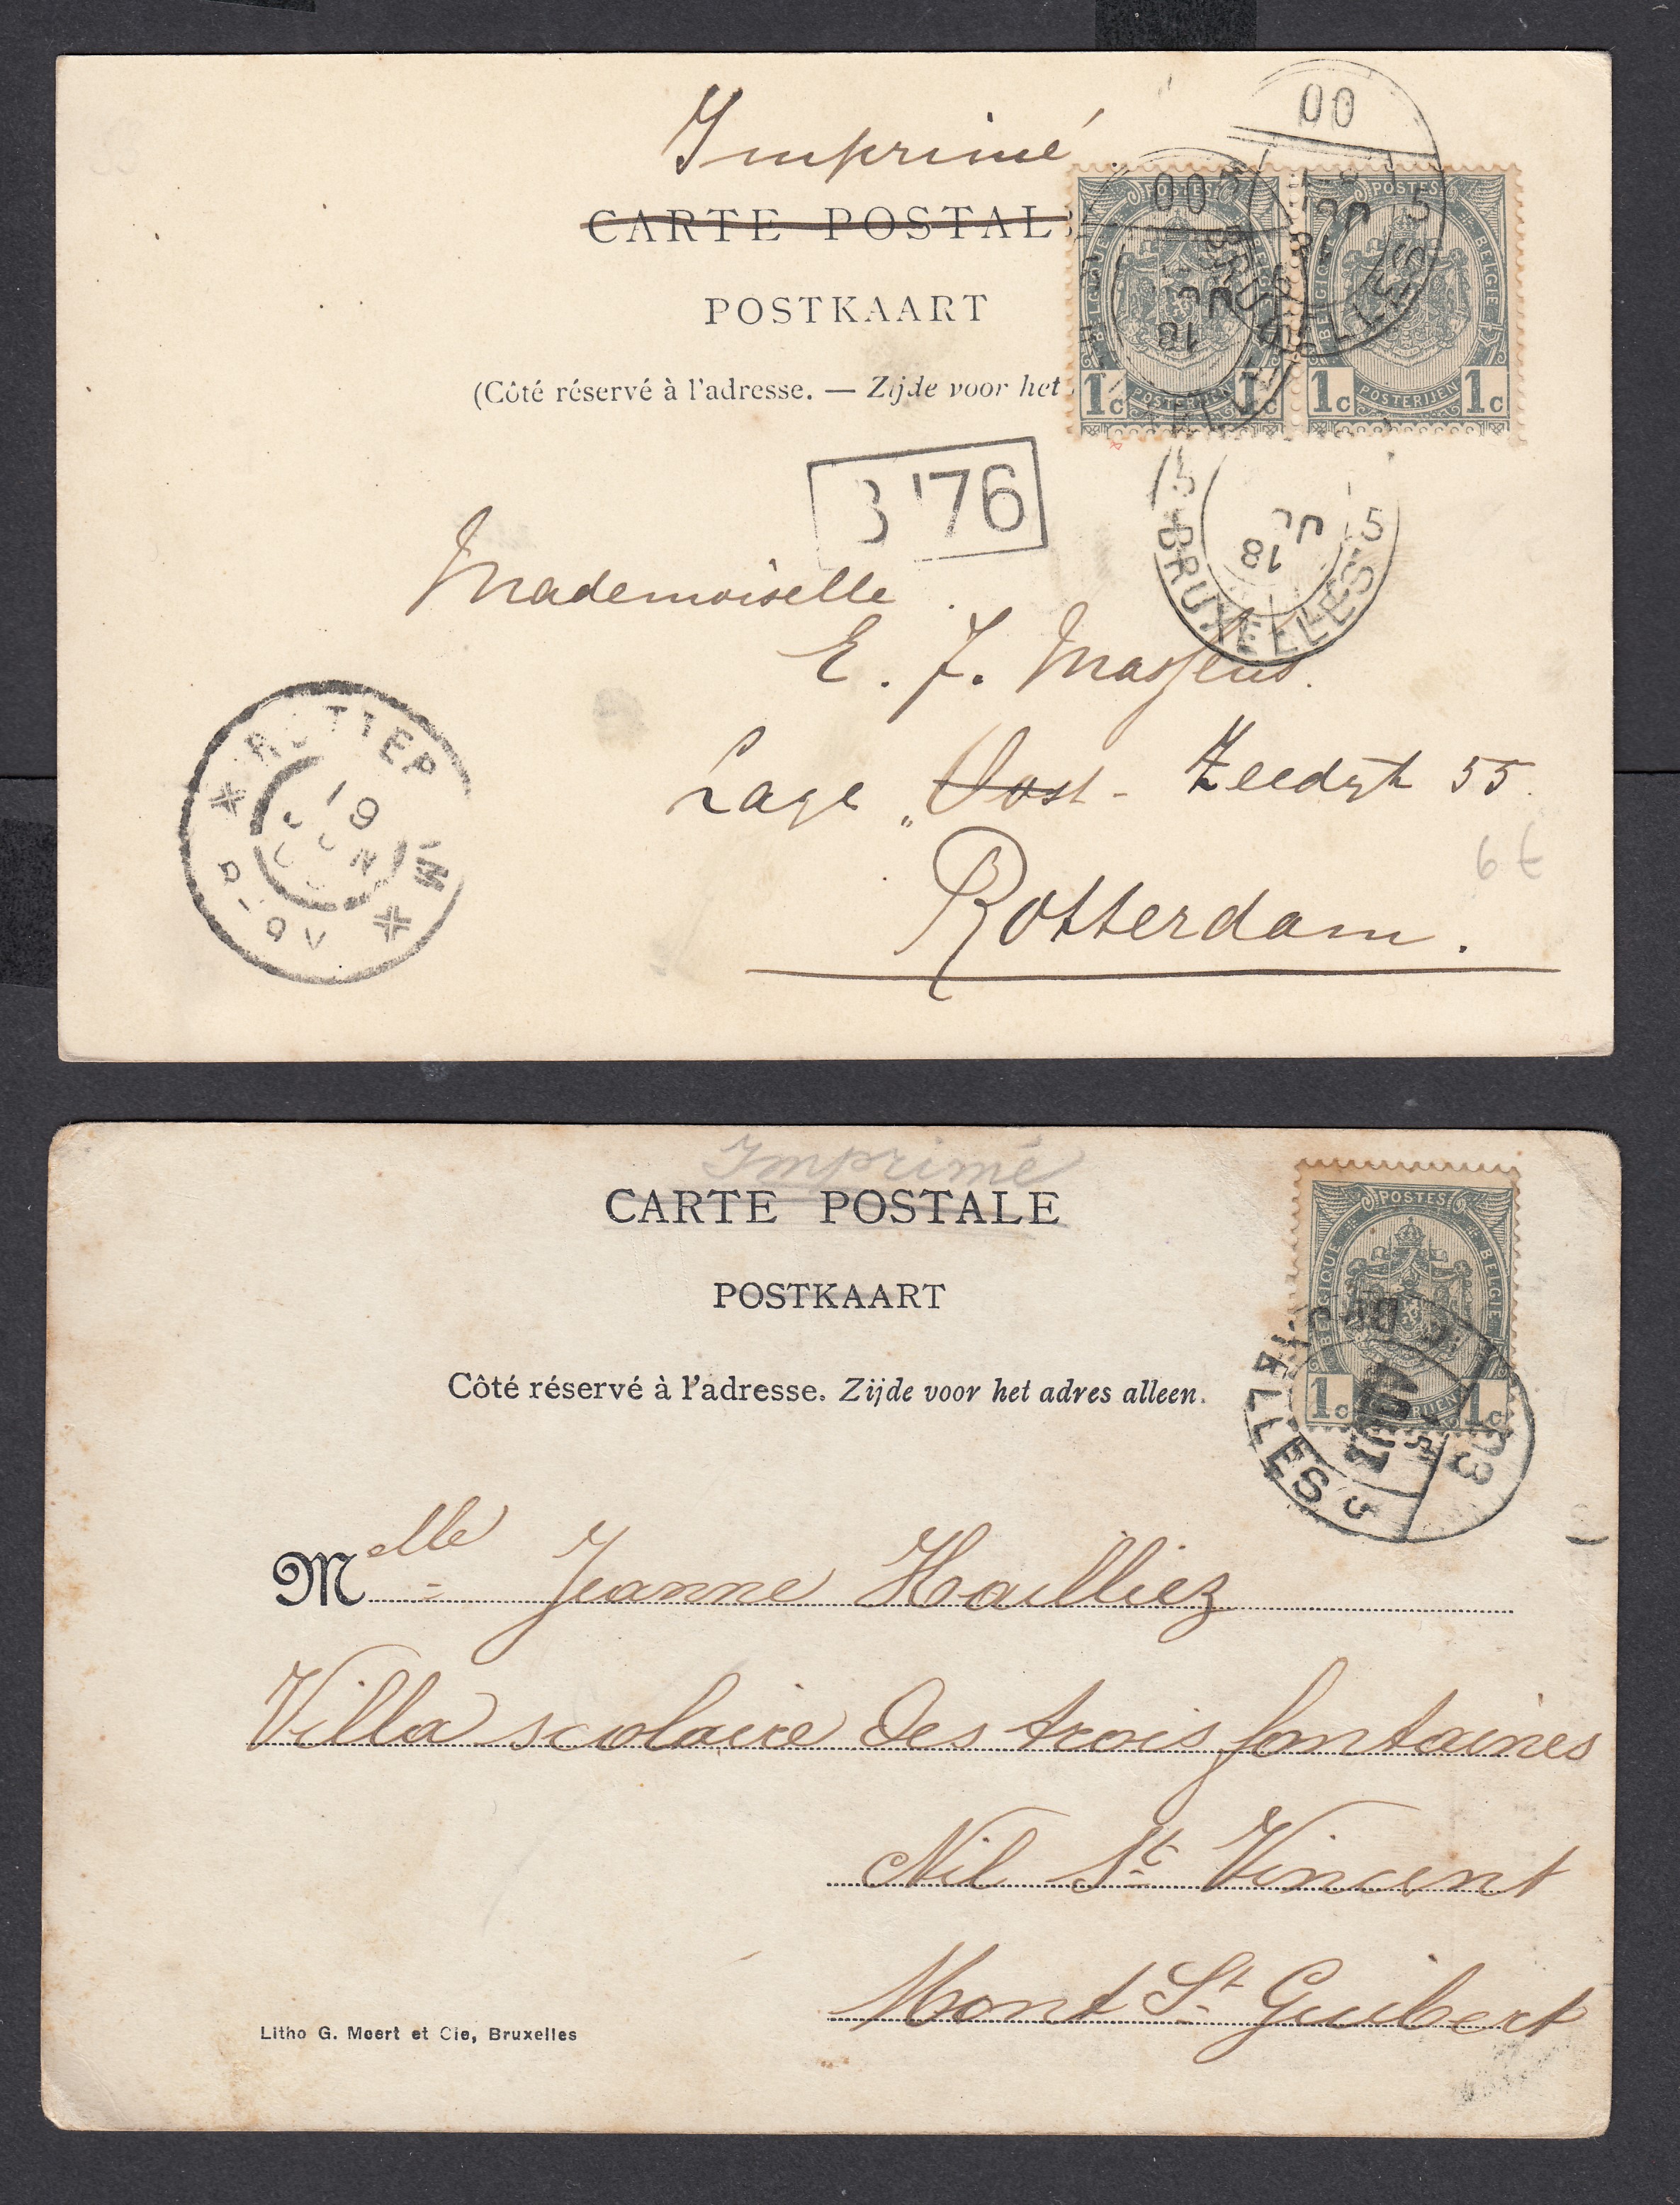 Imprimé
CARTE POSTALE
POSTKAART
(Côté réservé à l'adresse. — Zijde voor het
3 '76
Mademoiselle
E. J.
Lage Oost- Zeedyk 55.
Rotterdam.
6 €
POSTES
BELGIQUE BELGIE
1c POSTERIJEN 1c
POSTES
BELGIQUE BELGIE
1c POSTERIJEN 1c
00
BRUXELLES
18
00
5 BRUXELLES 5
18
5 BRUXELLES 5
18
ROTTER
19
JUN
Imprimé
CARTE POSTALE
POSTKAART
Côté réservé à l'adresse. Zijde voor het adres alleen.
POSTES
BELGIQUE BELGIE
1c 1c
03
AOUT
Melle Jeanne Hailliez
Villa scolaire des trois fontaines
Nil St Vincent
Mont St Guibert
Litho G. Moert et Cie, Bruxelles